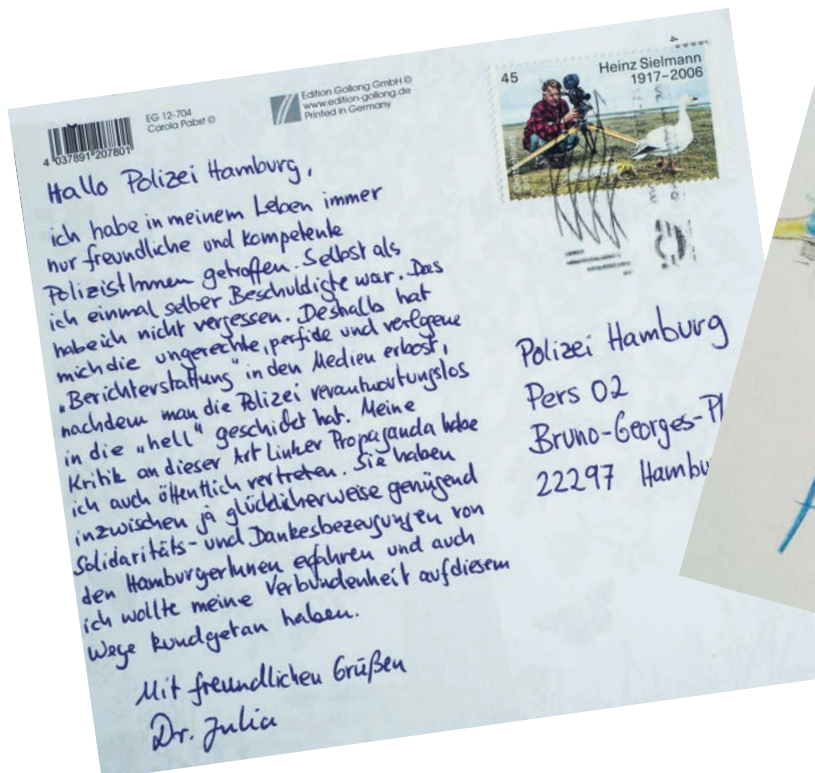 4 037891 207801
EG 12-704
Carola Pabst ©
Edition Gollong GmbH ©
www.edition-gollong.de
Printed in Germany
45
Heinz Sielmann
1917–2006
Hallo Polizei Hamburg,
ich habe in meinem Leben immer
nur freundliche und kompetente
PolizistInnen getroffen. Selbst als
ich einmal selber Beschuldigte war. Das
habe ich nicht vergessen. Deshalb hat
mich die ungerechte, perfide und verlogene
„Berichterstattung" in den Medien erbost,
nachdem man die Polizei verantwortungslos
in die „hell" geschickt hat. Meine
Kritik an dieser Art linker Propaganda habe
ich auch öffentlich vertreten. Sie haben
inzwischen ja glücklicherweise genügend
Solidaritäts- und Dankesbezeugungen von
den HamburgerInnen erfahren und auch
ich wollte meine Verbundenheit auf diesem
Wege kundgetan haben.
Mit freundlichen Grüßen
Dr. Julia
Polizei Hamburg
Pers 02
Bruno-Georges-Pl
22297 Hambu